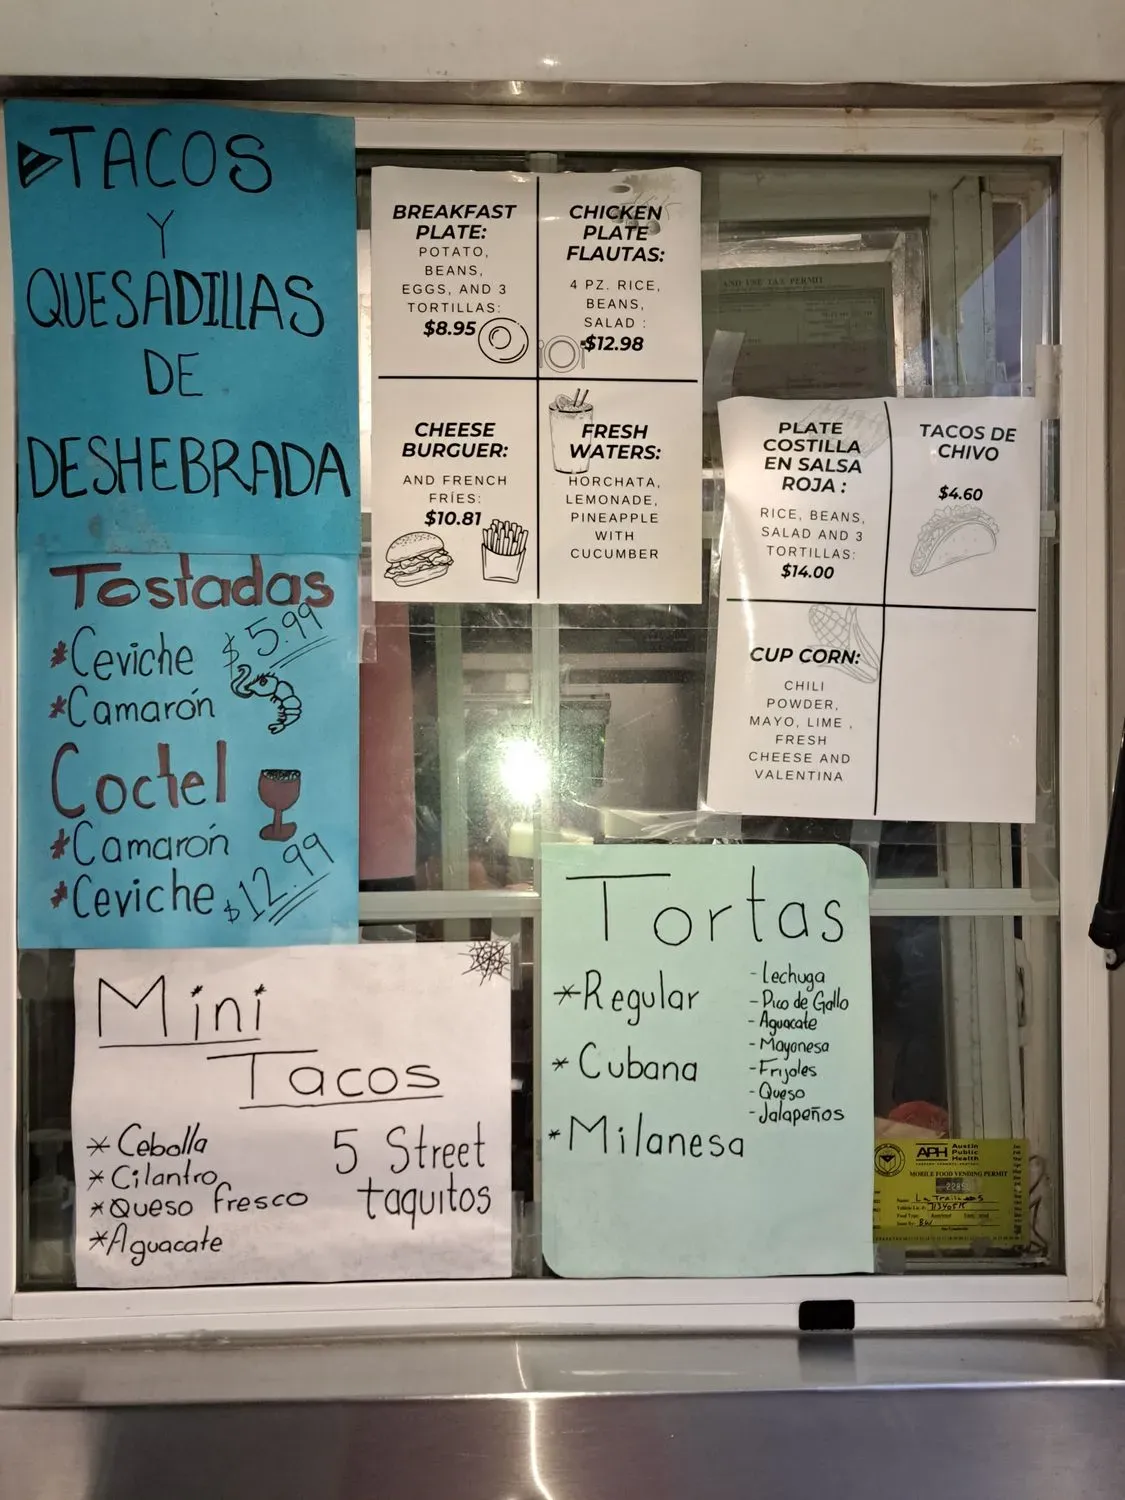 TACOS
Y
QUESADILLAS
DE
DESHEBRADA
Tostadas
*Ceviche
$5.99
*Camarón
Coctel
*Camarón
*Ceviche
$12.99
BREAKFAST
PLATE:
POTATO,
BEANS,
EGGS, AND 3
TORTILLAS:
$8.95
CHICKEN
PLATE
FLAUTAS:
4 PZ. RICE,
BEANS,
SALAD :
$12.98
CHEESE
BURGUER:
AND FRENCH
FRÍES:
$10.81
FRESH
WATERS:
HORCHATA,
LEMONADE,
PINEAPPLE
WITH
CUCUMBER
AND USE TAX PERMIT
PLATE
COSTILLA
EN SALSA
ROJA :
RICE, BEANS,
SALAD AND 3
TORTILLAS:
$14.00
TACOS DE
CHIVO
$4.60
CUP CORN:
CHILI
POWDER,
MAYO, LIME ,
FRESH
CHEESE AND
VALENTINA
Mini
Tacos
* Cebolla
* Cilantro
* Queso fresco
* Aguacate
5 Street
taquitos
Tortas
* Regular
* Cubana
* Milanesa
- Lechuga
- Pico de Gallo
- Aguacate
- Mayonesa
- Frijoles
- Queso
- Jalapeños
APH
Austin
Public
Health
MOBILE FOOD VENDING PERMIT
Name: